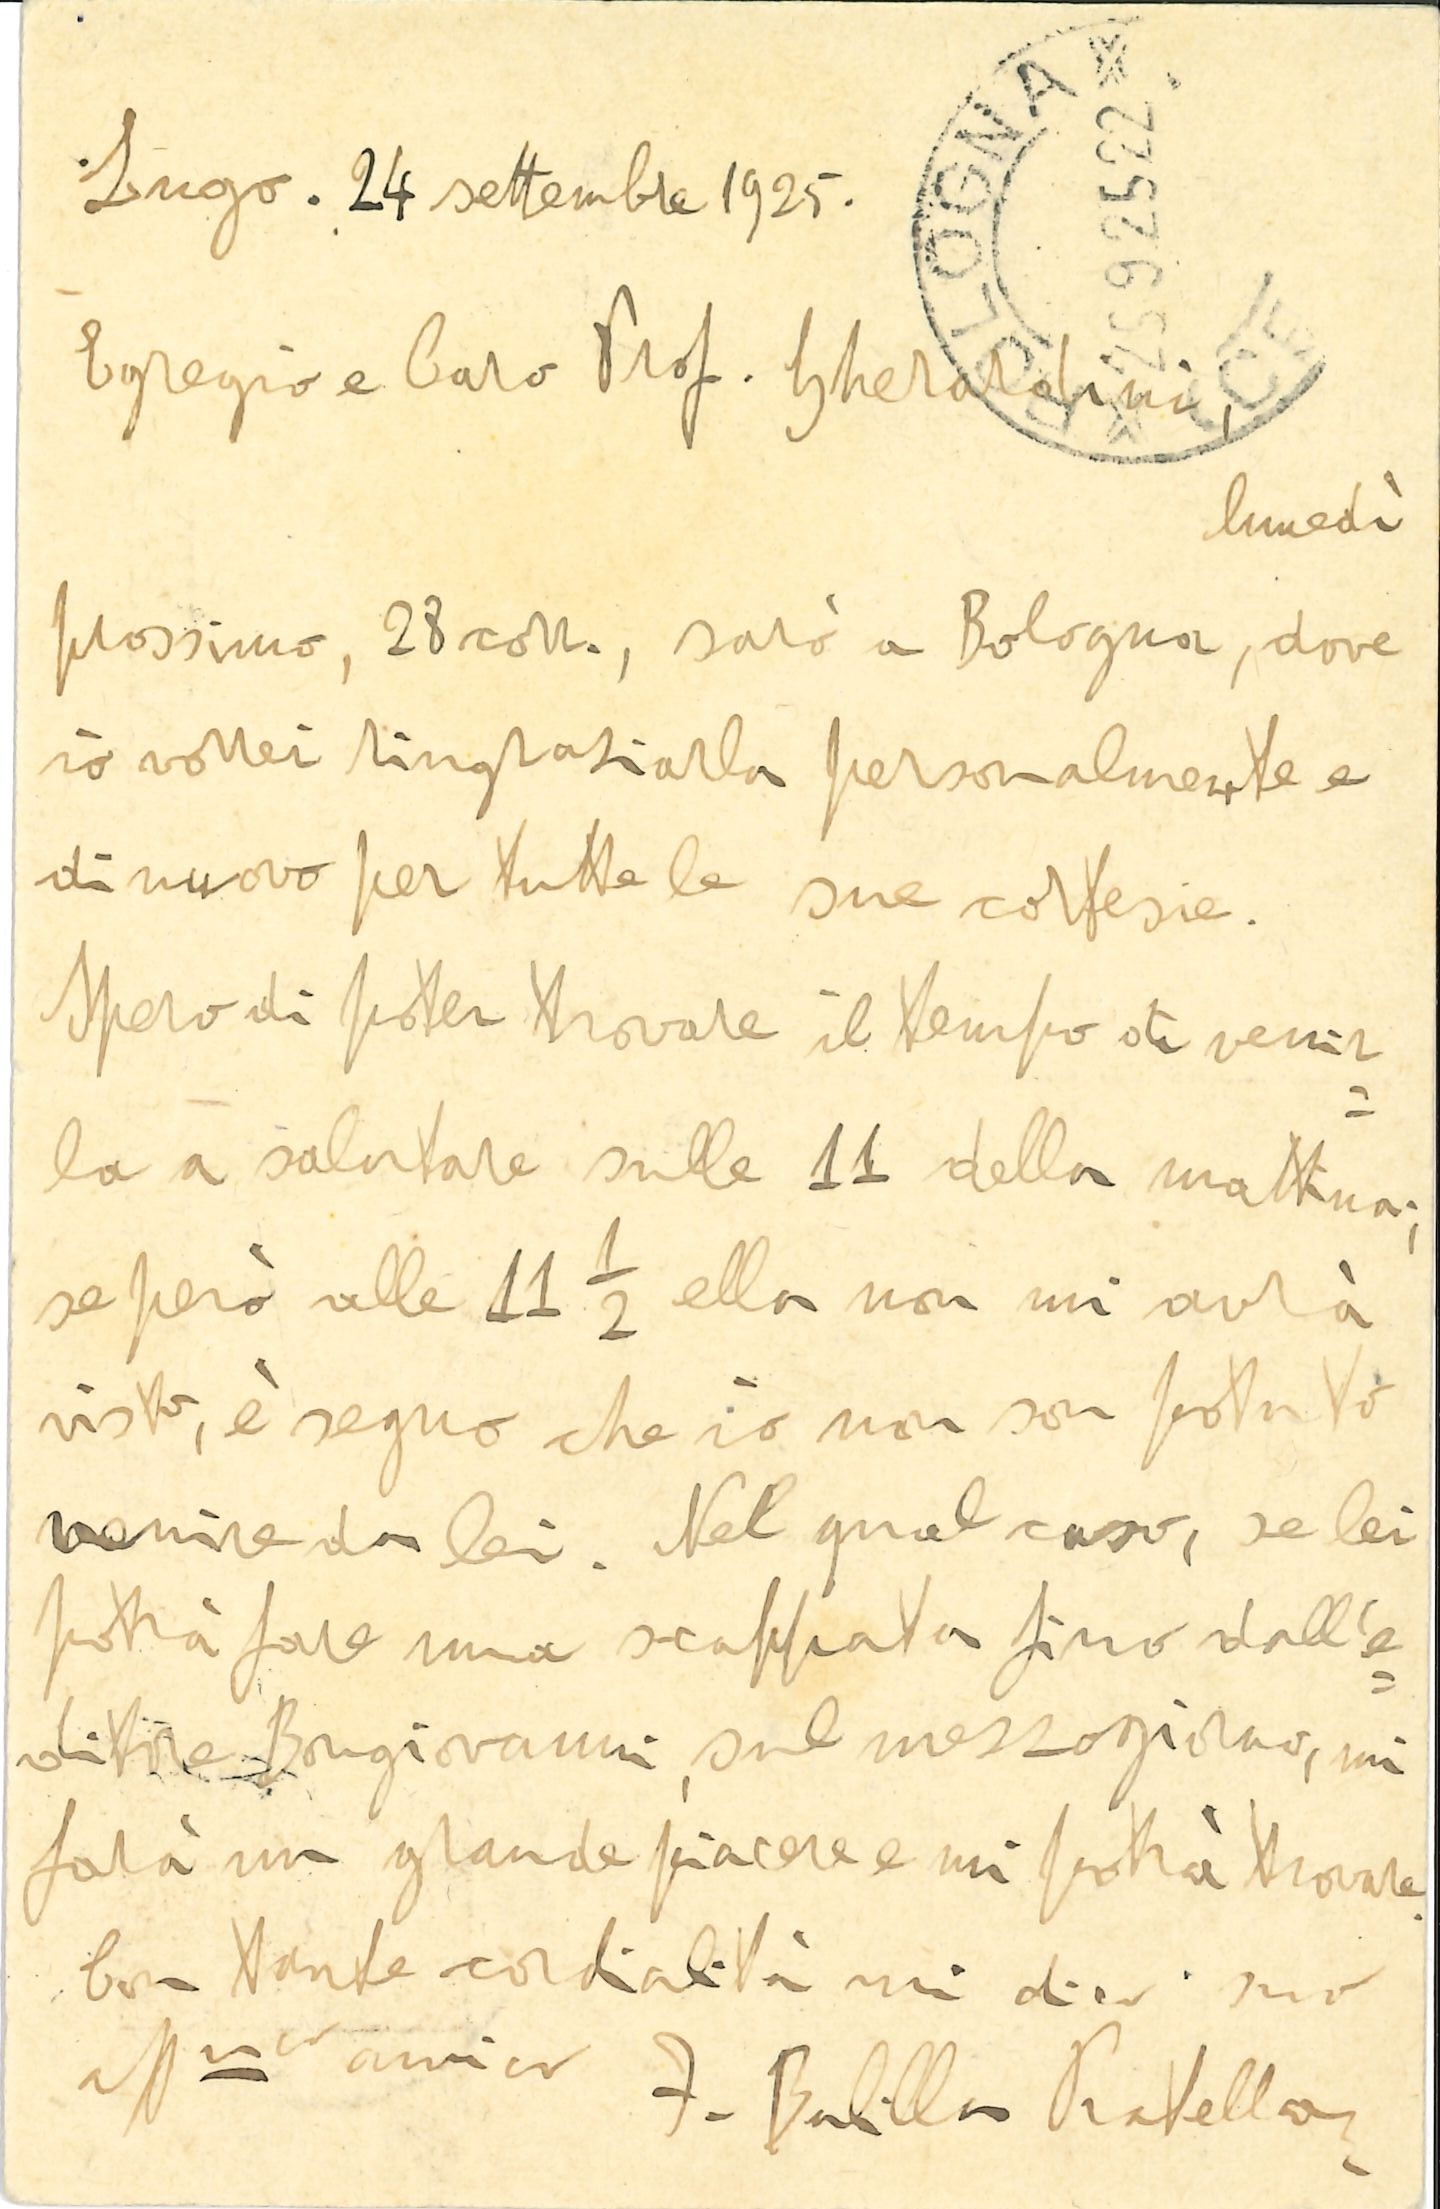 Lugo. 24 settembre 1925.
BOLOGNA
25 9 25 22
Egregio e Caro Prof. Gherardini,
lunedì
prossimo, 28 corr., sarò a Bologna, dove
io vorrei ringraziarla personalmente e
di nuovo per tutte le sue cortesie.
Spero di poter trovare il tempo di venir=
la a salutare sulle 11 della mattina;
se però alle 11 1/2 ella non mi avrà
visto, è segno che io non son potuto
venire da lei. Nel qual caso, se lei
potrà fare una scappata fino dall'e=
ditore Bongiovanni, sul mezzogiorno, mi
farà un grande piacere e mi potrà trovare.
Con tante cordialità mi dico suo
affmo amico F. Balilla Pratella